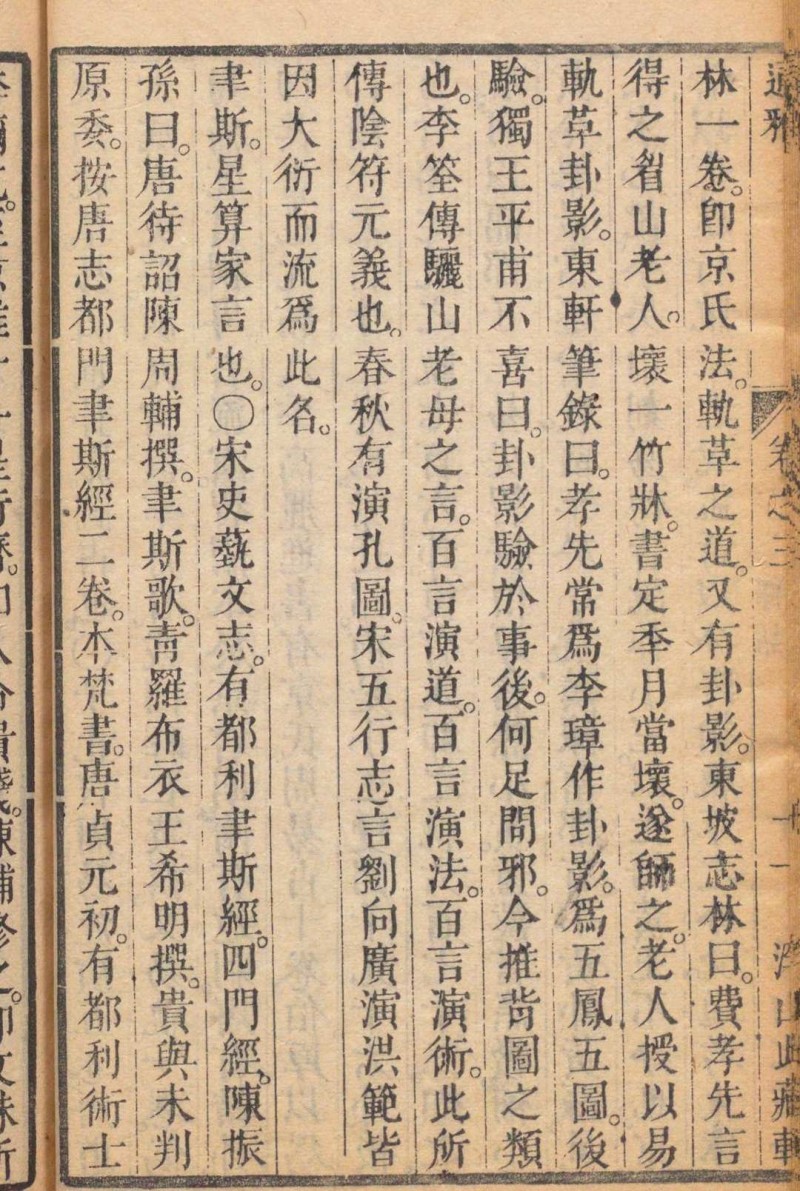 通雅 卷之三 十一 浮山此藏軒
林一卷。卽京氏法。軌草之道。又有卦影。東坡志林曰。費孝先言
得之眉山老人。壞一竹牀。書定年月當壞。遂師之。老人授以易
軌草卦影。東軒筆錄曰。孝先常爲李璋作卦影。爲五鳳五圖。後
驗。獨王平甫不喜曰。卦影驗於事後。何足問邪。今推背圖之類
也。李筌傳驪山老母之言。百言演道。百言演法。百言演術。此所
傳陰符元義也。春秋有演孔圖。宋五行志言劉向廣演洪範皆
因大衍而流爲此名。
聿斯。星算家言也。〇宋史藝文志。有都利聿斯經。四門經。陳振
孫曰。唐待詔陳周輔撰。聿斯歌。靑羅布衣王希明撰。貴與未判
原委。按唐志都門聿斯經二卷。本梵書。唐貞元初。有都利術士